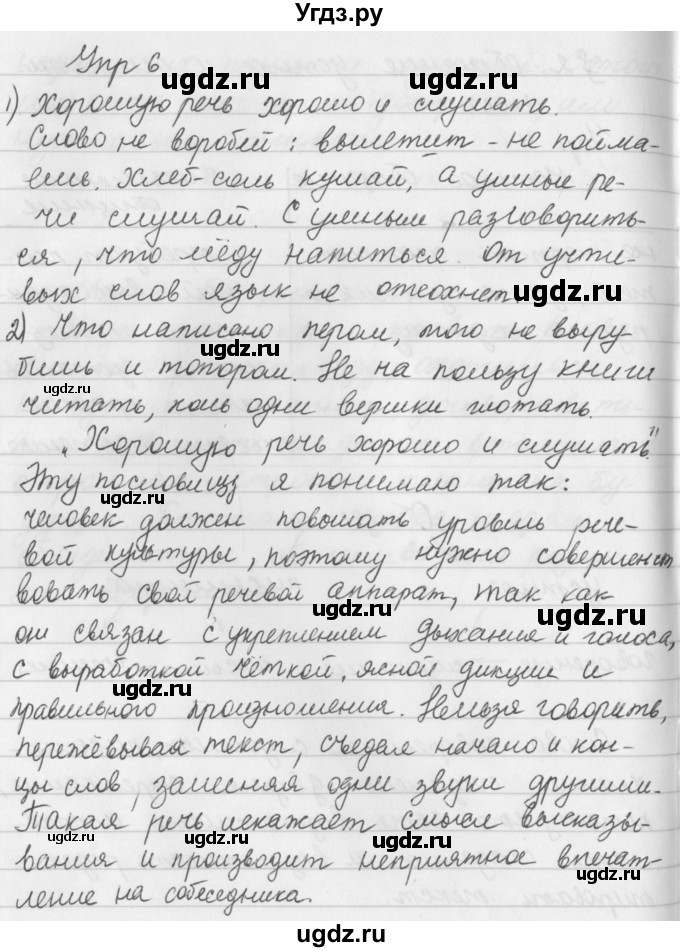 Угдз.ру
Упр 6
ugdz.ru
ugdz.ru
1) Хорошую речь хорошо и слушать.
Слово не воробей: вылетит - не пойма-
ugdz.ru
ешь. Хлеб-соль кушай, а умные ре-
чи слушай. С умным разговорить-
ugdz.ru
ся, что мёду напиться. От учти-
вых слов язык не отсохнет.
ugdz.ru
2) Что написано пером, того не выру
ugdz.ru
бишь и топором. Не на пользу книги
ugdz.ru
читать, коль одни вершки глотать.
ugdz.ru
„Хорошую речь хорошо и слушать"
Эту пословицу я понимаю так:
ugdz.ru
человек должен повышать уровень рече-
вой культуры, поэтому нужно совершенст
вовать свой речевой аппарат, так как
ugdz.ru
ugdz.ru
он связан с укреплением дыхания и голоса,
с выработкой чёткой, ясной дикции и
ugdz.ru
правильного произношения. Нельзя говорить,
пережёвывая текст, съедая начало и кон-
ugdz.ru
цы слов, заменяя одни звуки другими.
Такая речь искажает смысл высказы-
ugdz.ru
ugdz.ru
вания и производит неприятное впечат-
ление на собеседника.
ugdz.ru